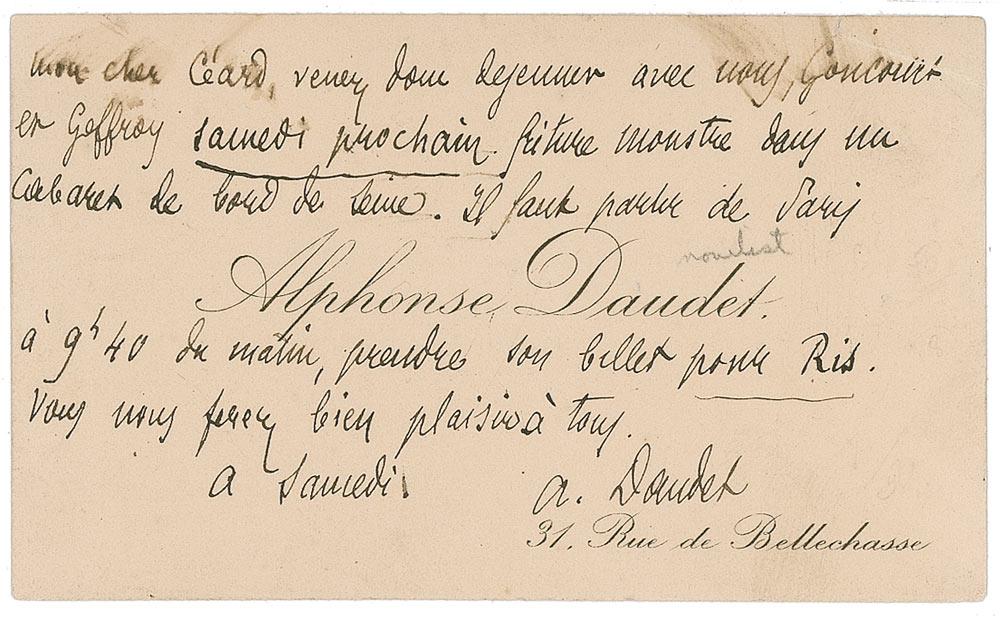 mon cher Céard, venez donc dejeuner avec nous, Goncourt
et Geffroy samedi prochain. friture monstre dans un
Cabaret de bord de seine. Il faut partir de Paris
novelist
Alphonse Daudet.
à 9h 40 du matin, prendre son billet pour Ris.
Vous nous ferez bien plaisir à tous.
a samedi.
a. Daudet
31, Rue de Bellechasse